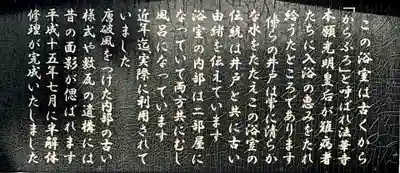 この浴室は古くから
「からふろ」と呼ばれ法華寺
本願光明皇后が難病者
たちに入浴の恵みをたれ
給うたところであります
傍らの井戸は常に清らか
な水をたたえこの浴室の
伝統は井戸と共に古い
由緒を伝えています
浴室の内部は二部屋に
なっていて両方共にむし
風呂になっています
近年迄実際に利用されて
いました
唐破風をつけた内部の古い
様式や敷瓦の遺構には
昔の面影が偲ばれます
平成十五年七月に半解体
修理が完成いたしました